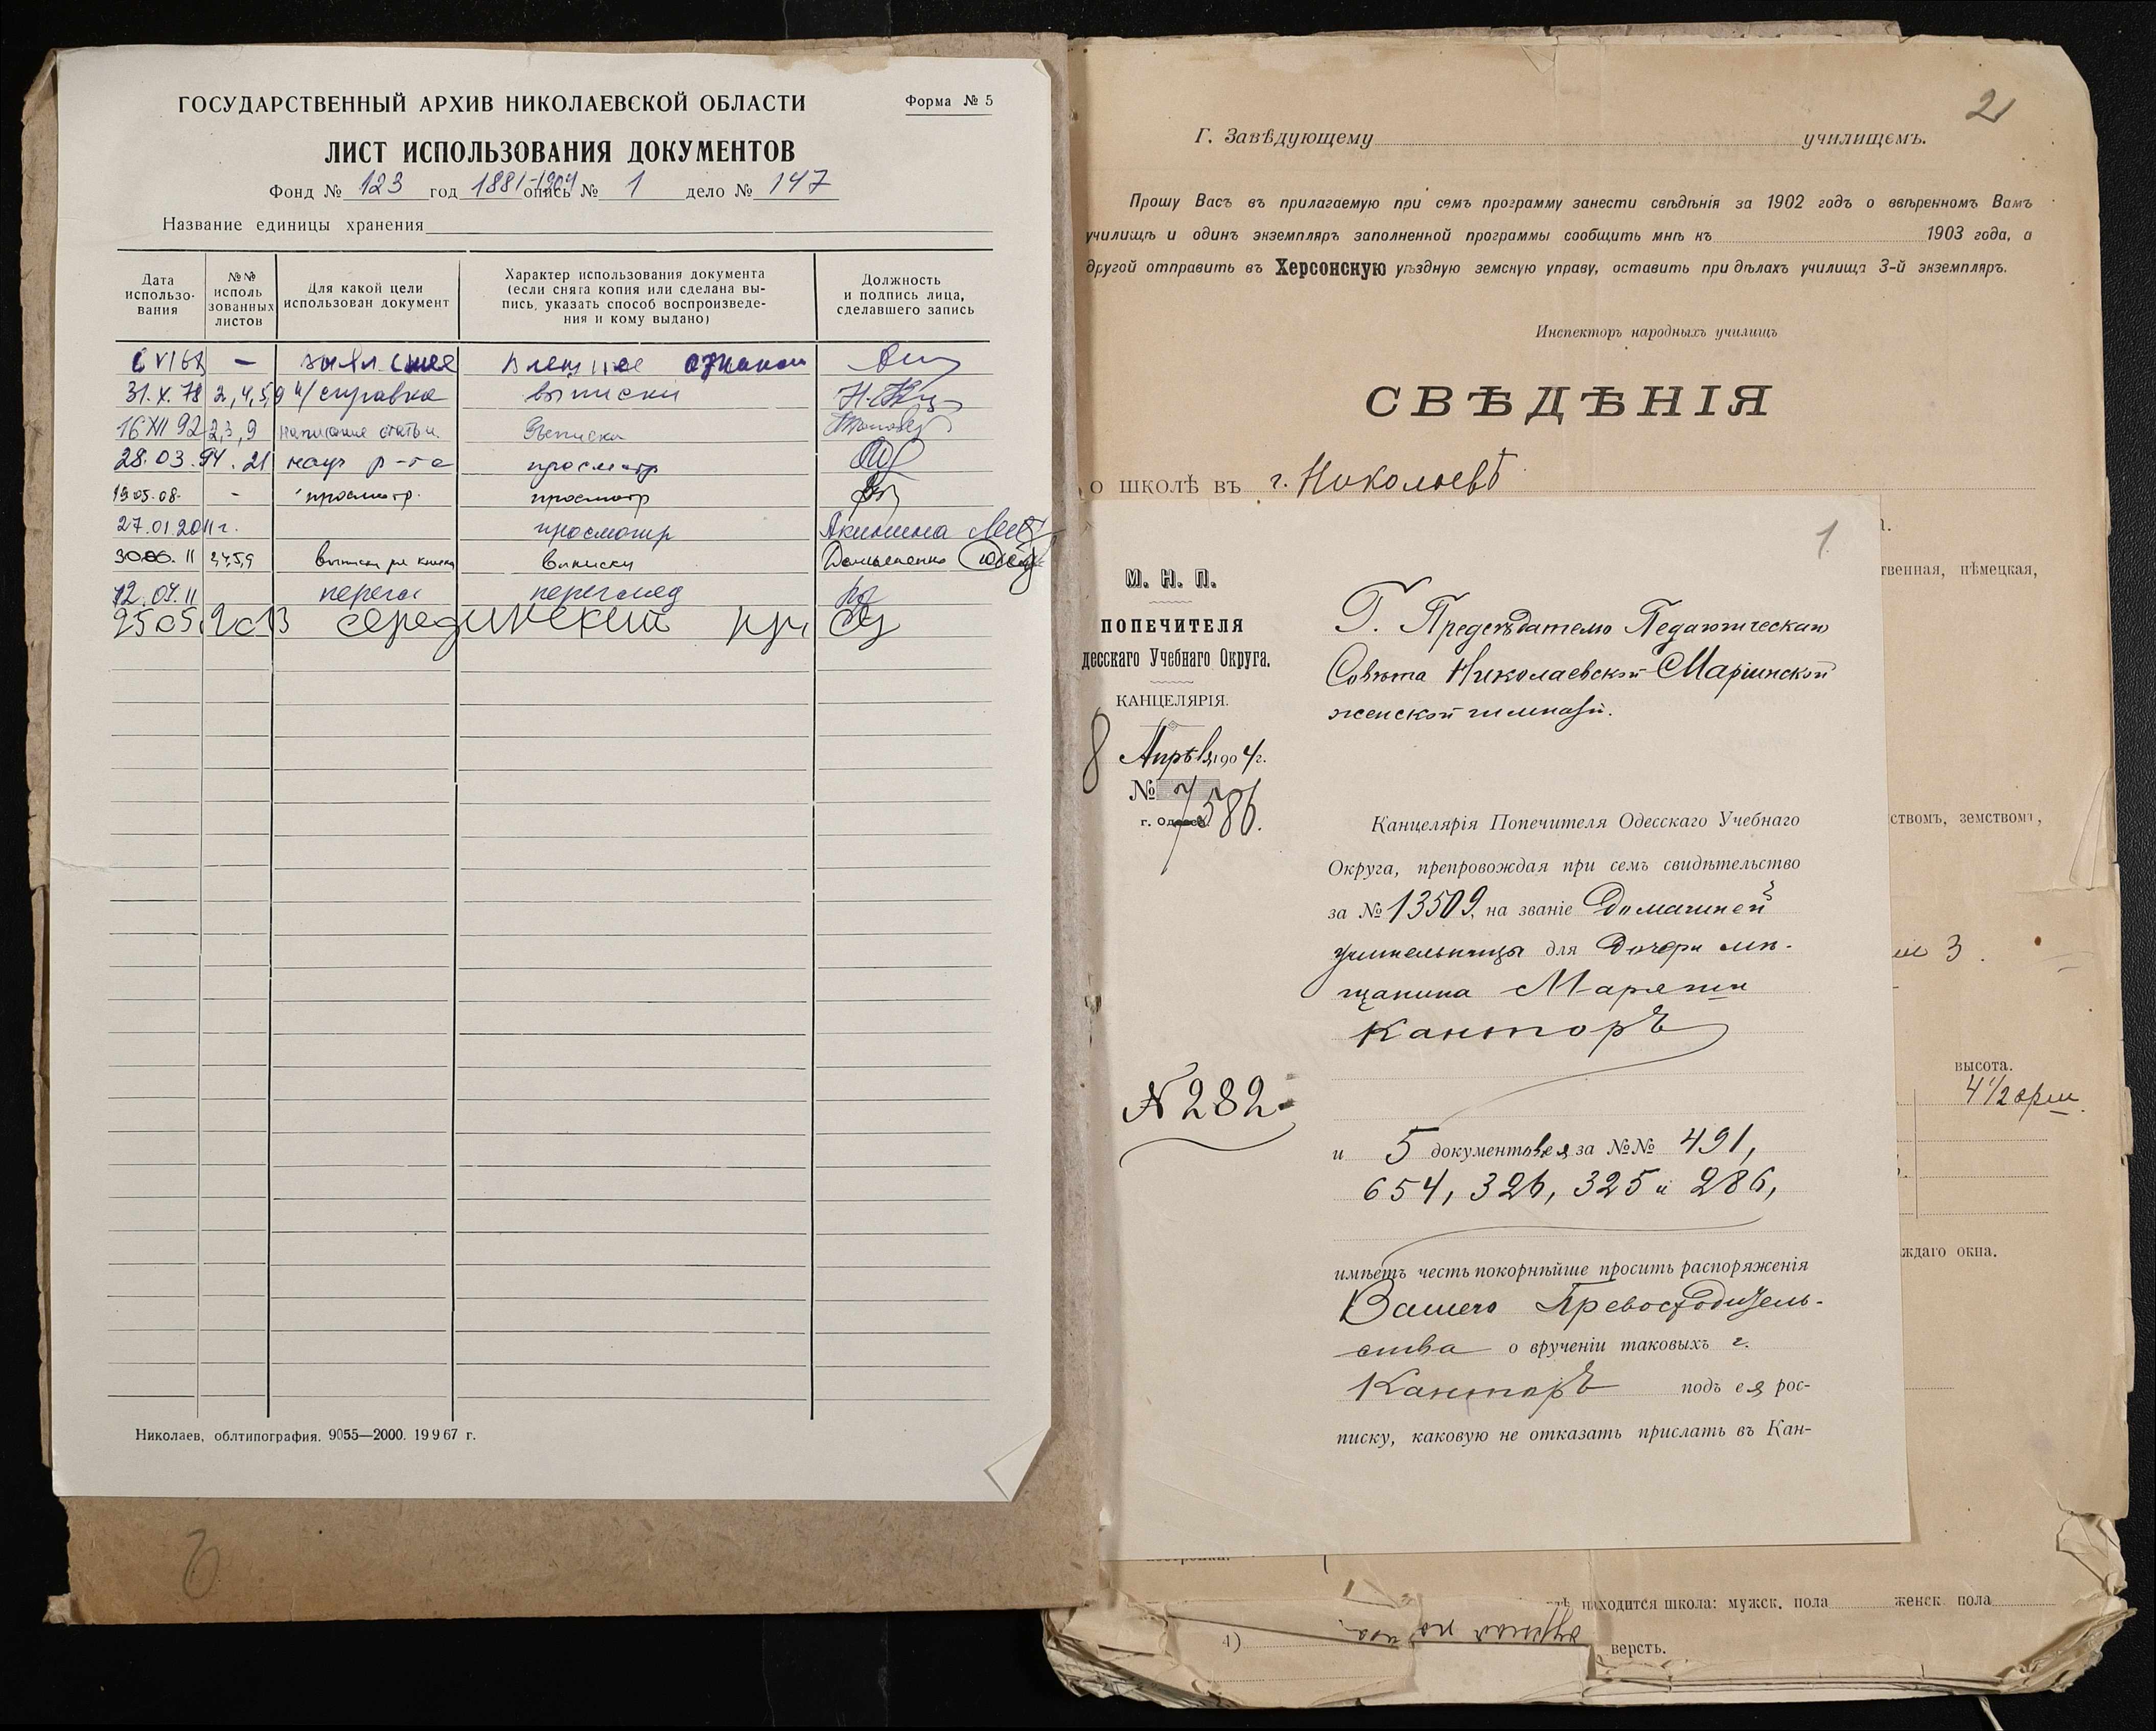 ГОСУДАРСТВЕННЫЙ АРХИВ НИКОЛАЕВСКОЙ ОБЛАСТИ
Форма № 5
ЛИСТ ИСПОЛЬЗОВАНИЯ ДОКУМЕНТОВ
Фонд № 123 год 1881-1904 опись № 1 дело № 147
Название единицы хранения
Дата использо-вания
№№ исполь зованных листов
Для какой цели использован документ
Характер использования документа (если снята копия или сделана вы-пись, указать способ воспроизведе-ния и кому выдано)
Должность и подпись лица, сделавшего запись
31.X.78 2,4,5,9 справка выписки
16 XII 92 2,3,9 написание статьи выписки
28.03.94. 21 просмотр
19.05.08. - просмотр. просмотр
27.01.2011 г. просмотр Акинина
30.06.11 2,4,5,9 выписки
12.07.11 перегл перегляд
25 05 2013
Николаев, облтипография. 9055—2000. 19967 г.
2
Г. Завѣдующему училищемъ.
Прошу Васъ въ прилагаемую при семъ программу занести свѣдѣнія за 1902 годъ о ввѣренномъ Вамъ
училищѣ и одинъ экземпляръ заполненной программы сообщить мнѣ къ 1903 года, а
другой отправить въ Херсонскую уѣздную земскую управу, оставить при дѣлахъ училища 3-й экземпляръ.
Инспекторъ народныхъ училищъ
СВѢДѢНІЯ
о школѣ въ г. Николаевѣ
1
М. Н. П.
ПОПЕЧИТЕЛЯ
десскаго Учебнаго Округа.
КАНЦЕЛЯРІЯ.
8 Апрѣля 1904 г.
№ 7586.
г. Одесса.
Г. Предсѣдателю Педагогическаго
Совѣта Николаевской Маріинской
женской гимназіи.
Канцелярія Попечителя Одесскаго Учебнаго
Округа, препровождая при семъ свидѣтельство
за № 13509, на званіе Домашней
учительницы для дочери мѣ-
щанина Марями
Канторъ
N 282
и 5 документовъ ея за №№ 491,
654, 326, 325 и 286,
имѣетъ честь покорнѣйше просить распоряженія
Вашего Превосходитель-
ства о врученіи таковыхъ г.
Канторъ подъ ея рос-
писку, каковую не отказать прислать въ Кан-
твенная, нѣмецкая,
ствомъ, земствомъ,
3.
высота.
4 1/2 арш.
ждаго окна.
находится школа: мужск. пола женск. пола
4) верстъ.